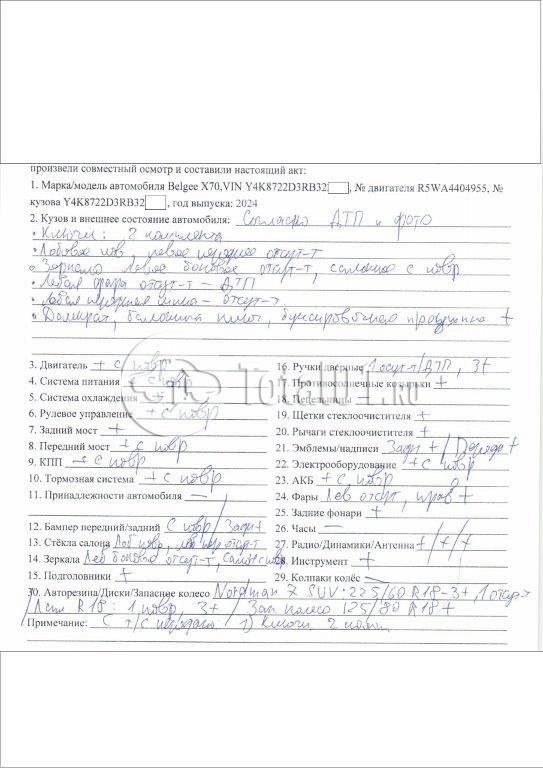 произвели совместный осмотр и составили настоящий акт:
1. Марка/модель автомобиля Belgee X70,VIN Y4K8722D3RB32, № двигателя R5WA4404955, №
кузова Y4K8722D3RB32, год выпуска: 2024
2. Кузов и внешнее состояние автомобиля: Согласно ДТП и фото
• Ключи: 2 комплекта
• Лобовое повр, левое переднее отсут-т
• Зеркало левое боковое отсут-т, салонное с повр
• Левая фара отсут-т – ДТП
• Левая передняя шина – отсут-т
• Домкрат, балонный ключ, буксировочная проушина +
3. Двигатель + с повр
4. Система питания + с повр
5. Система охлаждения +
6. Рулевое управление + с повр
7. Задний мост +
8. Передний мост + с повр
9. КПП + с повр
10. Тормозная система + с повр
11. Принадлежности автомобиля —
12. Бампер передний/задний С повр/Задн+
13. Стёкла салона Лоб повр, лев пер отсут-т
14. Зеркала Лев боковое отсут-т, салон с повр
15. Подголовники +
16. Ручки дверные 1 отсут-т/ДТП, 3+
17. Противосолнечные козырьки +
18. Пепельницы —
19. Щетки стеклоочистителя +
20. Рычаги стеклоочистителя +
21. Эмблемы/надписи Задн +/
22. Электрооборудование + с повр
23. АКБ + с повр
24. Фары Лев отсут, прав +
25. Задние фонари +
26. Часы —
27. Радио/Динамики/Антенна +/+/+
28. Инструмент +
29. Колпаки колёс —
30. Авторезина/Диски/Запасное колесо Nordman 7 SUV 225/60 R18-3+, 1 отсут-т
/Литы R18: 1 повр, 3+ / Зап колесо 125/80 R18+
Примечание: С т/с передана 1) Ключи 2 компл
TotalIt.RU